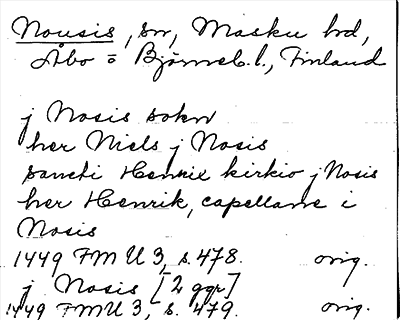 Nousis, sn, Masku hd,
Åbo o Björneb. l., Finland
j Nosis sokn
her Niels j Nosis
sancti Henrix kirkio j Nosis
her Henrik, capellane i
Nosis
1449 FMU 3, s. 478. orig.
j Nosis [2 ggr]
1449 FMU 3, s. 479. orig.